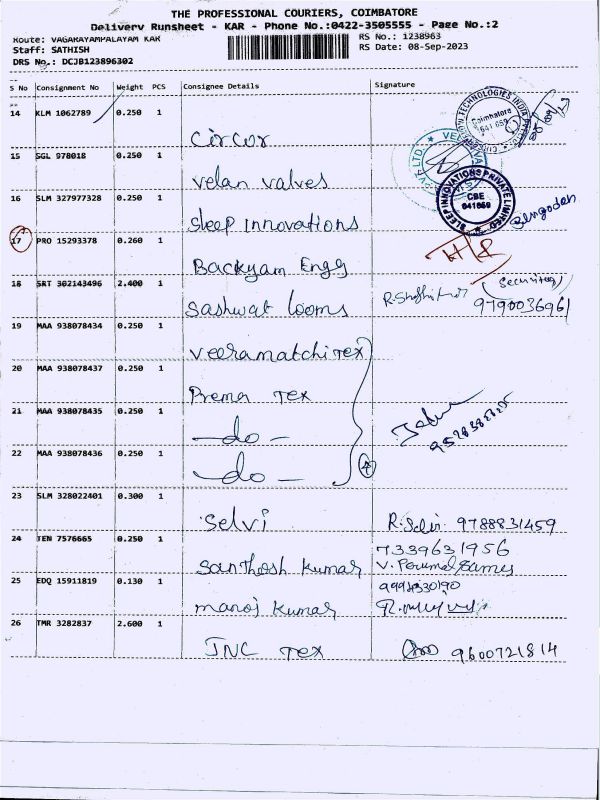 THE PROFESSIONAL COURIERS, COIMBATORE
Delivery Runsheet - KAR - Phone No.:0422-3505555 - Page No.:2
Route: VAGARAYAMPALAYAM KAR
RS No.: 1238963
Staff: SATHISH
RS Date: 08-Sep-2023
DRS No.: DCJB123896302
S No Consignment No Weight PCS Consignee Details Signature
14 KLM 1062789 0.250 1 Circor
15 SGL 978018 0.250 1 Velan valves
16 SLM 327977328 0.250 1 Sleep Innovations
SLEEP INNOVATIONS PRIVATE LIMITED
CBE
641659
Coimbatore
641 659
17 PRO 15293378 0.260 1 Backyam Engg
18 SRT 302143496 2.400 1 Sashwat looms (Security) 9790036961
19 MAA 938078434 0.250 1 Veeramatchi Tex
20 MAA 938078437 0.250 1 Prema Tex
21 MAA 938078435 0.250 1 -do-
22 MAA 938078436 0.250 1 -do-
4
23 SLM 328022401 0.300 1 Selvi R.Selvi 9788831459
24 TEN 7576665 0.250 1 Santhosh Kumar 7339631956
V. Perumal
25 EDQ 15911819 0.130 1 manoj kumar
26 TMR 3282837 2.600 1 JNC Tex 9600721814